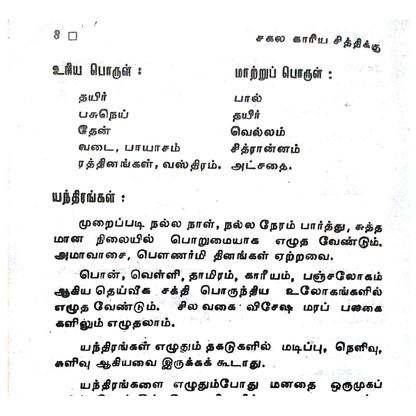 8 □ சகல காரிய சித்திக்கு
உரிய பொருள் : மாற்றுப் பொருள் :
தயிர் பால்
பசுநெய் தயிர்
தேன் வெல்லம்
வடை, பாயாசம் சித்ரான்னம்
ரத்தினங்கள், வஸ்திரம். அட்சதை.
யந்திரங்கள் :
முறைப்படி நல்ல நாள், நல்ல நேரம் பார்த்து, சுத்த
மான நிலையில் பொறுமையாக எழுத வேண்டும்.
அமாவாசை, பௌர்ணமி தினங்கள் ஏற்றவை.
பொன், வெள்ளி, தாமிரம், காரீயம், பஞ்சலோகம்
ஆகிய தெய்வீக சக்தி பொருந்திய உலோகங்களில்
எழுத வேண்டும். சில வகை விசேஷ மரப் பலகை
களிலும் எழுதலாம்.
யந்திரங்கள் எழுதும் தகடுகளில் மடிப்பு, நெளிவு,
சுளிவு ஆகியவை இருக்கக் கூடாது.
யந்திரங்களை எழுதும்போது மனதை ஒருமுகப்